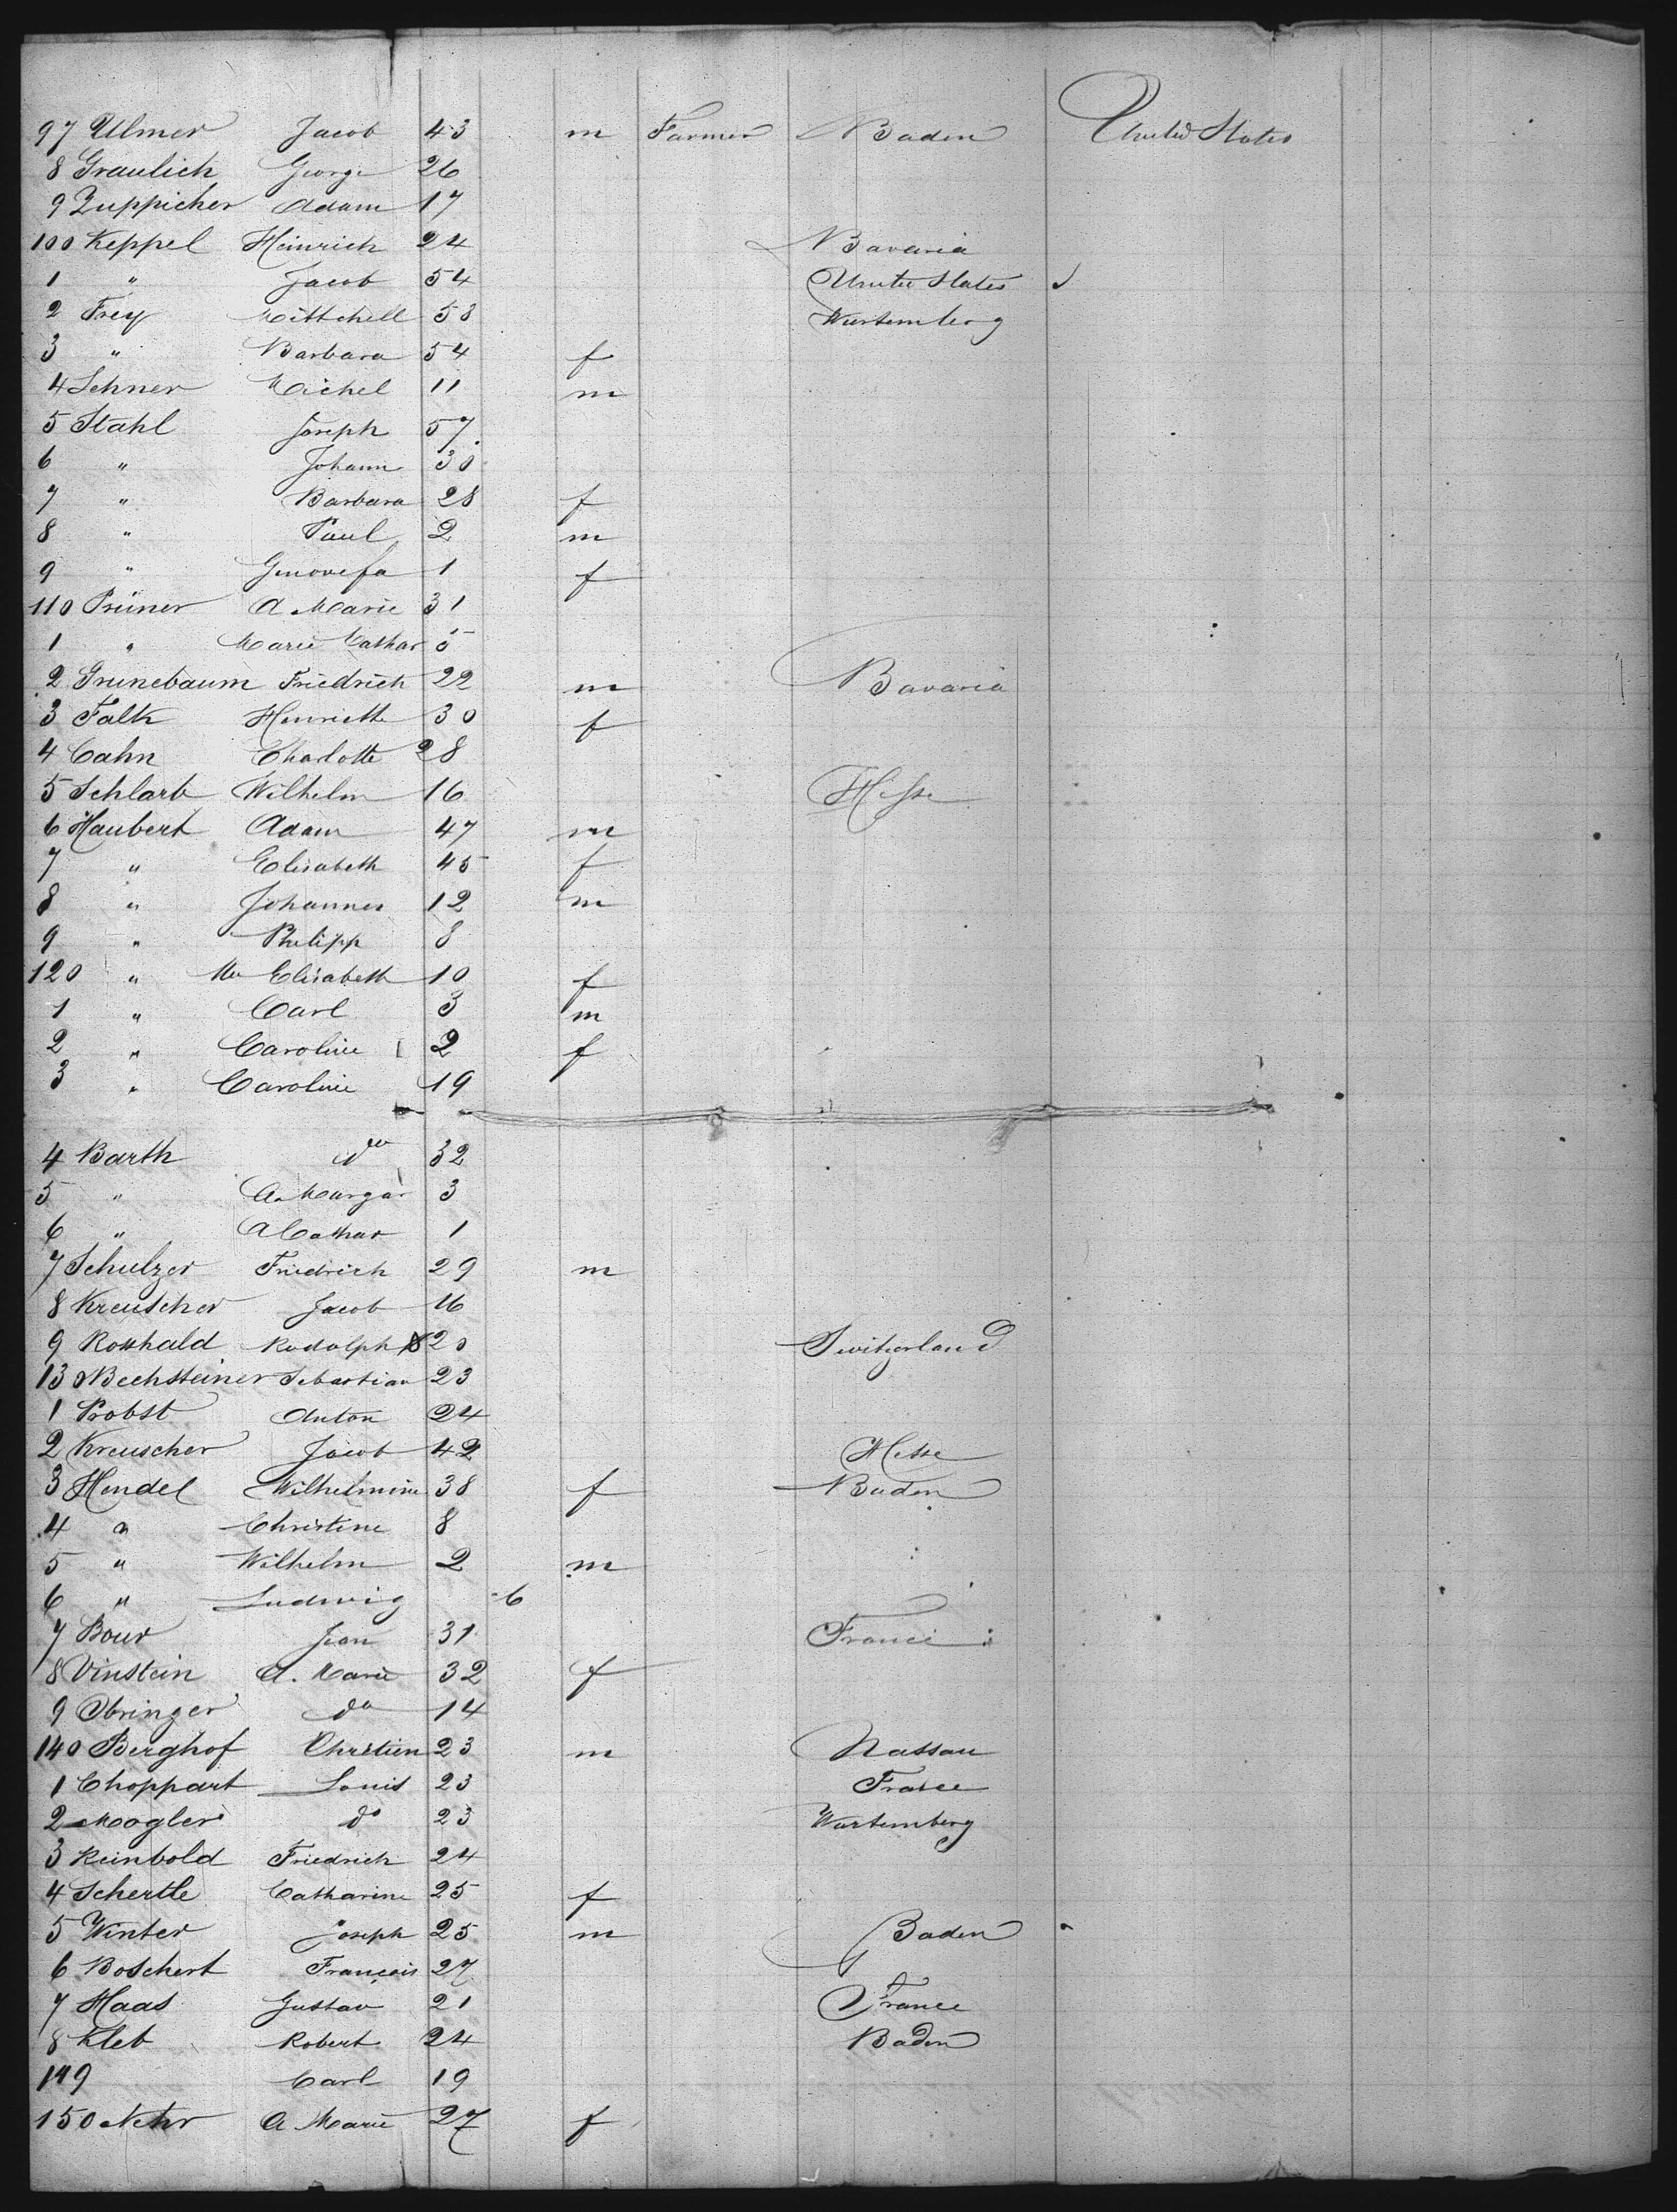 97 Ulmer Jacob 43 m Farmer Baden United States
8 Graulich George 26
9 Zuppicher Adam 17
100 Keppel Heinrich 24 Bavaria
1 " Jacob 54 United States
2 Frey Mittchell 58 Wurtemberg
3 " Barbara 54 f
4 Lehner Michel 11 m
5 Stahl Joseph 57
6 " Johann 30
7 " Barbara 28 f
8 " Paul 2 m
9 " Genovefa 1 f
110 Prüner A Marie 31
1 " Marie Cathar 5
2 Grunebaum Friedrich 22 m Bavaria
3 Falk Henriette 30 f
4 Cahn Charlotte 28
5 Schlarb Wilhelm 16 Hesse
6 Haubert Adam 47 m
7 " Elisabeth 45 f
8 " Johannes 12 m
9 " Philipp 8
120 " Elisabeth 10 f
1 " Carl 3 m
2 " Caroline 2 f
3 " Caroline 19
4 Barth do 32
5 " A. Margar 3
6 " A Cathar 1
7 Schulzer Friedrich 29 m
8 Kreuscher Jacob 16
9 Rosshald Rudolph 20 Switzerland
130 Bechsteiner Sebastian 23
1 Probst Anton 24
2 Kreuscher Jacob 42 Hesse
3 Hendel Wilhelmine 38 f Baden
4 " Christine 8
5 " Wilhelm 2 m
6 " Ludwig 6
7 Bour Jean 31 France
8 Vinstein A. Marie 32 f
9 Obringer do 14
140 Berghof Chrétien 23 m Nassau
1 Choppart Louis 23 France
2 Mogler do 23 Wurtemberg
3 Reinbold Friedrich 24
4 Schertle Catharine 25 f
5 Winter Joseph 25 m Baden
6 Boschert François 27
7 Haas Gustav 21 France
8 Kleb Robert 24 Baden
149 Carl 19
150 Nehr A Marie 27 f